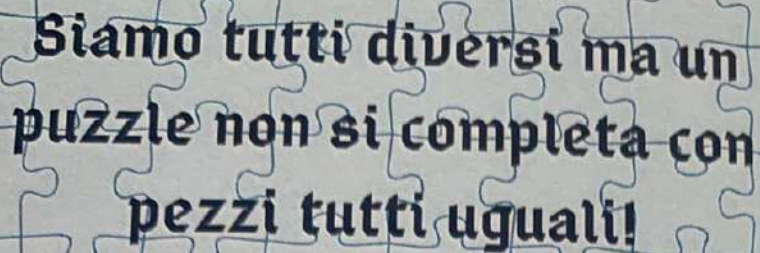 Siamo tutti diversi ma un
puzzle non si completa con
pezzi tutti uguali!